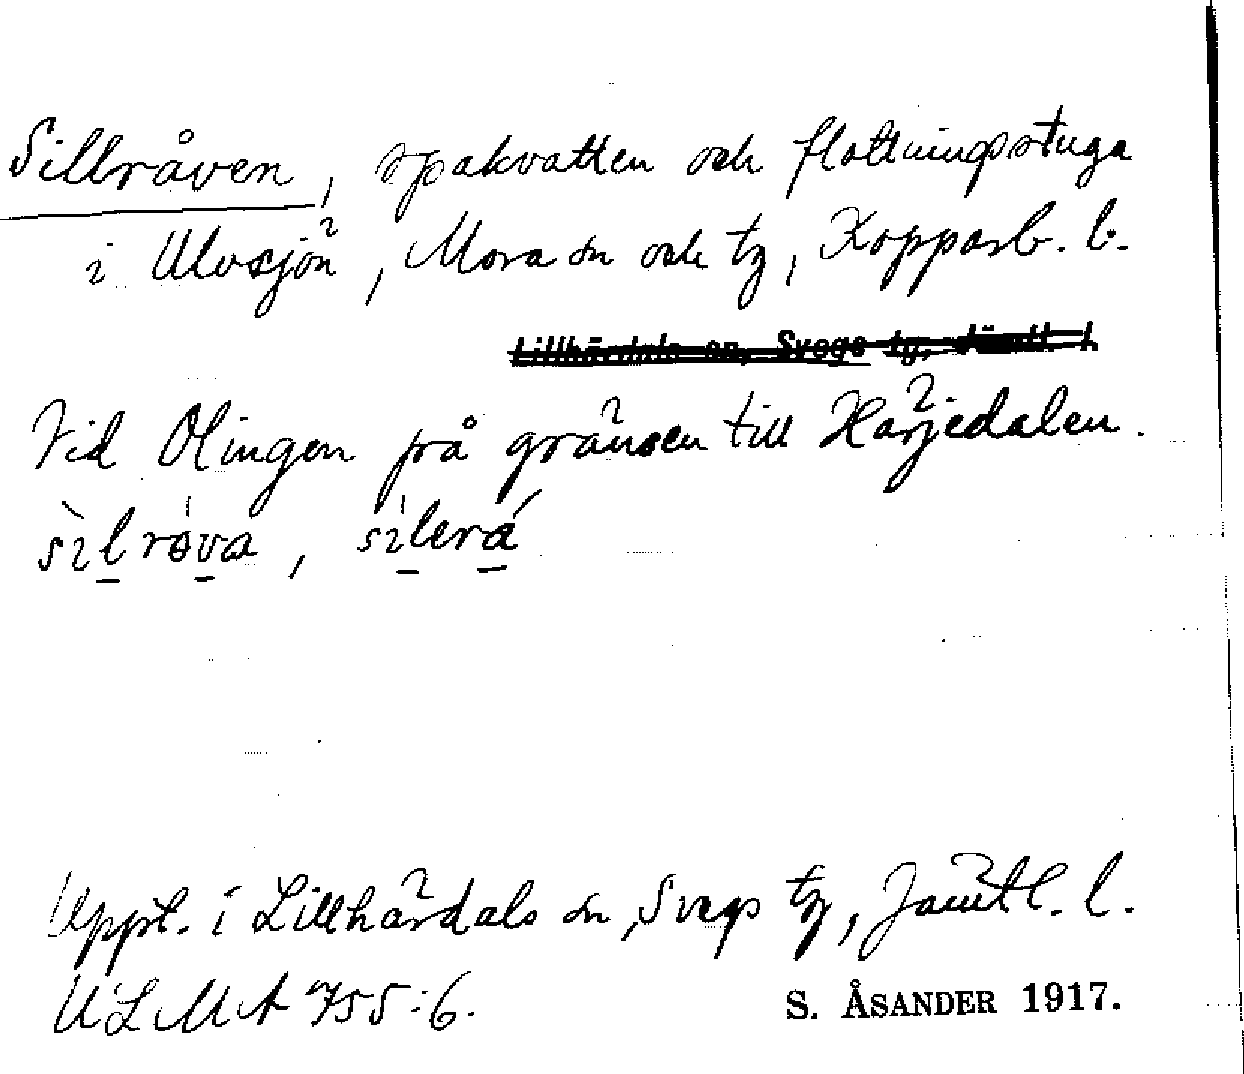 Sillråven, spakvatten och flottningsstuga
i Ulvsjön, Mora sn och tg, Kopparb. l.
Lillhärdals sn, Svegs tg, Jämtl l.
Vid Olingen på gränsen till Härjedalen.
sìlrøva, sìlerá
Uppt. i Lillhärdals sn, Svegs tg, Jämtl. l.
ULMA 755:6.
S. ÅSANDER 1917.